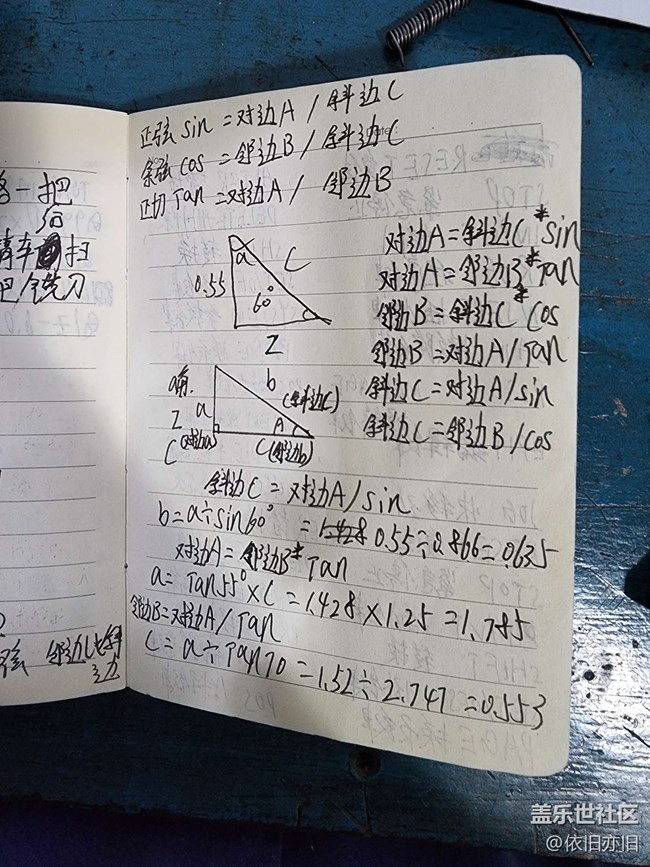 一把
铣刀
正弦 sin = 对边A / 斜边C
余弦 cos = 邻边B / 斜边C
正切 Tan = 对边A / 邻边B
对边A = 斜边C * sin
对边A = 邻边B * Tan
邻边B = 斜边C * cos
邻边B = 对边A / Tan
斜边C = 对边A / sin
斜边C = 邻边B / cos
a
C
0.55
60°
Z
a角.
Z
a
b
(斜边C)
A
C(邻边b)
斜边C = 对边A / sin
b = a ÷ sin60° = 0.55 ÷ 0.866 = 0.635
对边A = 邻边B * Tan
a = Tan55° × C = 1.428 × 1.25 = 1.785
邻边B = 对边A / Tan
C = a ÷ Tan70 = 1.52 ÷ 2.747 = 0.553
弦 邻边比斜
盖乐世社区
@依旧亦旧